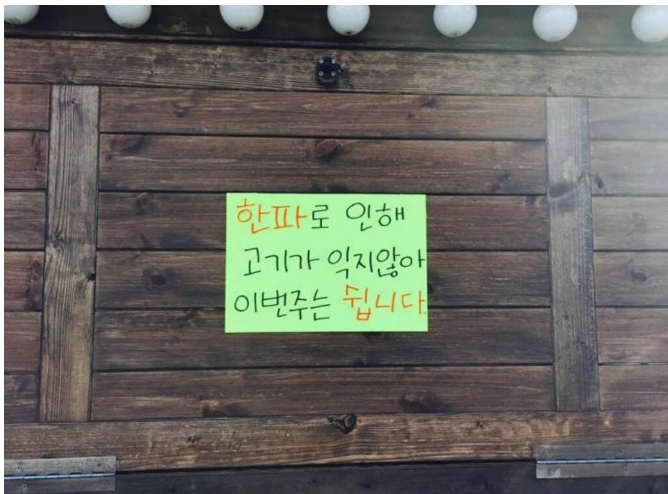 한파로 인해
고기가 익지않아
이번주는 쉽니다.